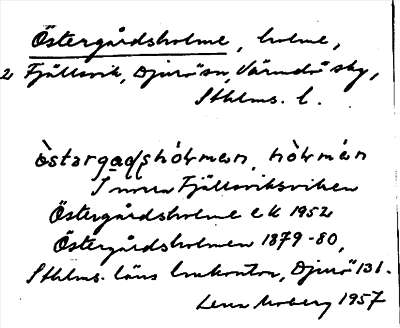 Östergårdsholme, holme,
2 Fjällsvik, Djurö sn, Värmdö skg,
Sthlms. l.
I norra Fjällsviksviken
Östergårdsholme ek 1952
Östergårdsholmen 1879-80,
Sthlms. läns lmkontor, Djurö 131.
Lena Moberg 1957